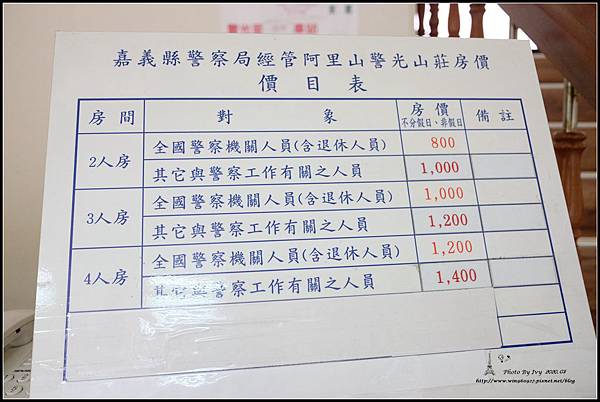 嘉義縣警察局經管阿里山警光山莊房價
價目表
房間 對象 房價 不分假日、非假日 備註
2人房 全國警察機關人員(含退休人員) 800
其它與警察工作有關之人員 1,000
3人房 全國警察機關人員(含退休人員) 1,000
其它與警察工作有關之人員 1,200
4人房 全國警察機關人員(含退休人員) 1,200
其它與警察工作有關之人員 1,400
Photo By Ivy